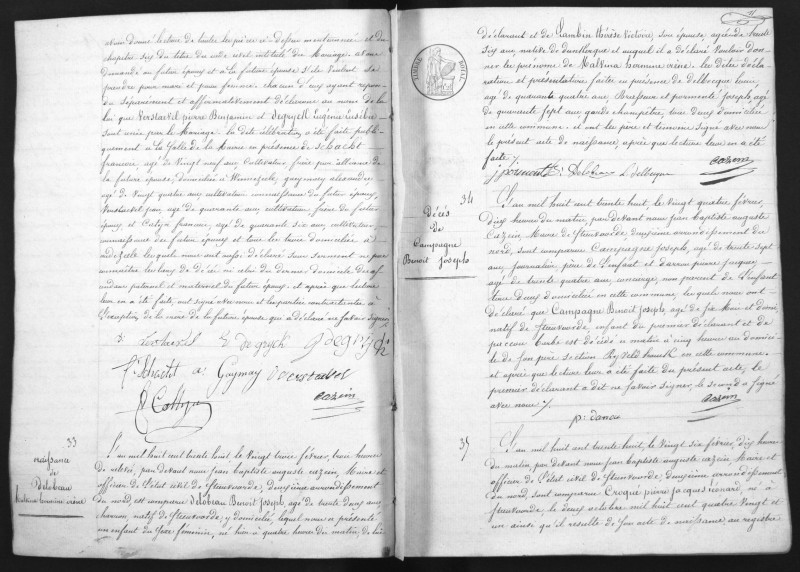 avoir donné lecture de toutes les pièces ci-dessus mentionnées et du
chapitre six du titre du code civil intitulé du Mariage, avons
demandé au futur époux et à la future épouse s'ils veulent se
prendre pour mari et pour femme, chacun d'eux ayant répon
du séparément et affirmativement déclarons au nom de la
loi que Verstavel pierre Benjamin et Degryck Eugénie
sont unis par le Mariage. la dite célébration a été faite publi
quement à la Salle de la Mairie en présence de Schactet
françois, agé de Vingt neuf ans Cultivateur frère par alliance de
la future épouse, domicilié à Winnezeele, alexandre
agé de Vingt quatre ans cultivateur du futur époux,
Verstavel jean, agé de quarante ans cultivateur, frère du futur
époux et françois, agé de quarante six ans cultivateur
du futur époux et tous les trois domiciliés à
lesquels nous ont aussi déclaré sous serment ne pas
connaître les lieux de décès ni celui du dernier domicile des ay
eux paternel et maternel du futur époux. et après que lecture
leur en a été faite, ont signé avec nous et les parties contractantes à
l'exception de la mère de la future épouse qui a déclaré ne savoir signer
E Degryck
Verstavel
Cazein
33
naissance
de
Delobeau
L'an mil huit cent trente huit le vingt trois février, trois heures
de relevée, par devant nous jean Baptiste auguste cazein, Maire et
officier de l'état civil de Steenvoorde, deuxième arrondissement
du nord, est comparu Delobeau Benoit Joseph, agé de trente deux ans,
charron, natif de Steenvoorde, y domicilié, lequel nous a présenté
un enfant du sexe féminin, né hier à quatre heures du matin, de lui
déclarant et de Lambin thérèse victoire, son épouse, agée de trente
six ans, native de dunkerque et auquel il a déclaré vouloir don
ner les prénoms de Malvina hermine irène. les dites décla
ration et présentations faites en présence de Delbecque louis,
agé de quarante quatre ans Brasseur et joseph, agé
de quarante sept ans garde champêtre, tous deux domiciliés
en cette commune. et ont les père et témoins signé avec nous
le présent acte de naissance, après que lecture leur en a été
faite.
TIMBRE ROYAL
Delobeau L Delbecque
Cazein
34
Décès
de
Campagne
Benoit Joseph
L'an mil huit cent trente huit, le vingt quatre février,
dix heures du matin, par devant nous jean Baptiste auguste
Cazein, Maire de Steenvoorde deuxième arrondissement du
nord, sont comparus Campagne Joseph, agé de trente sept
ans, journalier, père de l'enfant et Darrou pierre jacques,
agé de trente quatre ans, concierge, non parent de l'enfant
tous Deux domiciliés en cette commune, lesquels nous ont
déclaré que Campagne Benoit joseph, agé de six Mois et demi,
natif de Steenvoorde, enfant du premier déclarant et de
est décédé ce matin à cinq heures au domici
le de son père section en cette commune.
et après que lecture leur a été faite du présent acte, le
premier déclarant a dit ne savoir signer, le second a signé
avec nous.
Cazein
35
L'an mil huit cent trente huit, le vingt six février, dix heures
du matin, par devant nous jean Baptiste auguste cazein Maire et
officier de l'état civil de Steenvoorde, deuxième arrondissement
du nord, sont comparus Croqué pierre jacques léonard, né à
Steenvoorde, le deux octobre mil huit cent quatre vingt et
un ainsi qu'il résulte de son acte de naissance, au registre